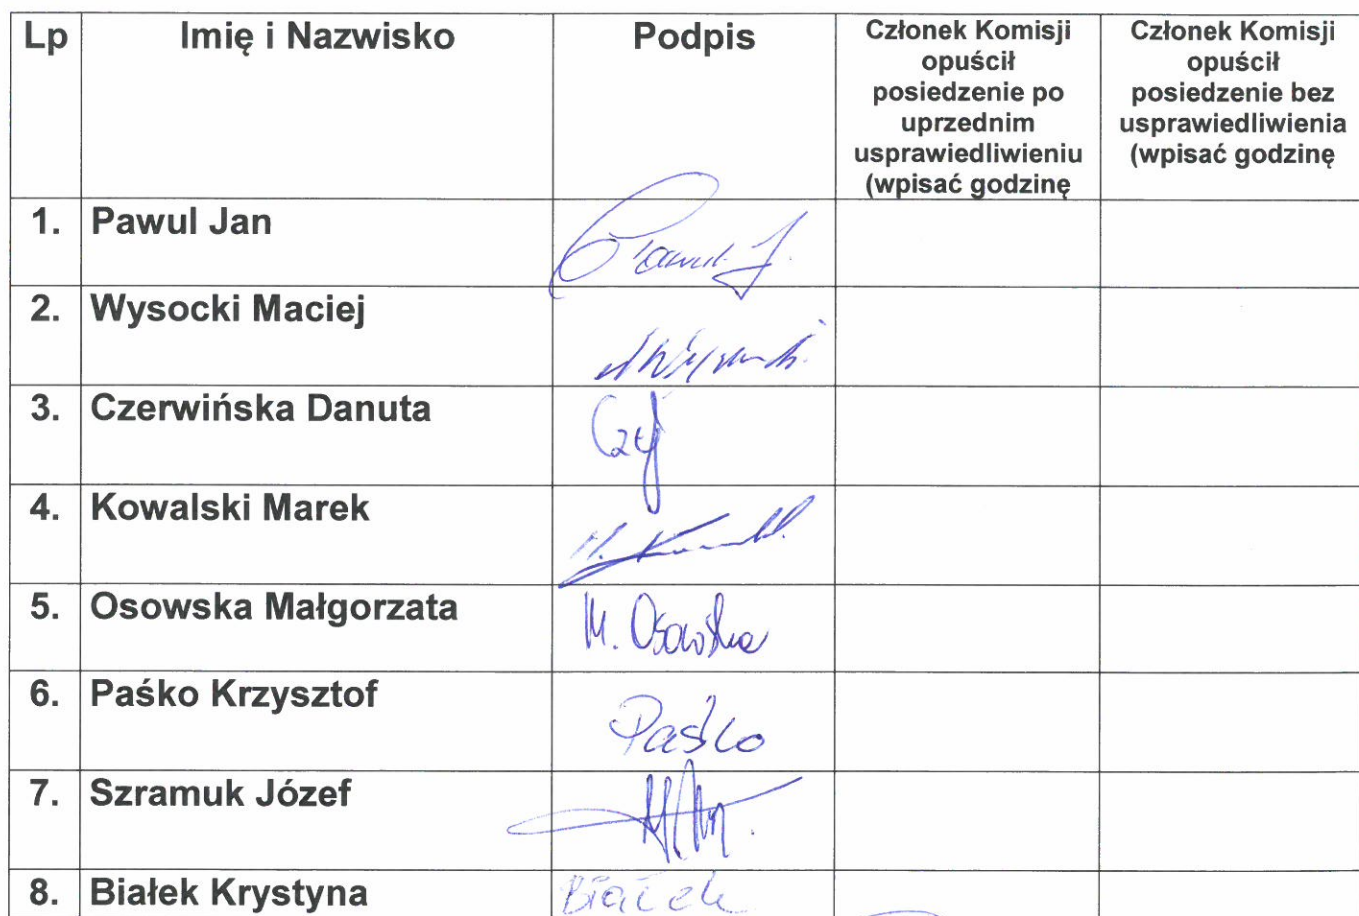 Lp Imię i Nazwisko Podpis Członek Komisji opuścił posiedzenie po uprzednim usprawiedliwieniu (wpisać godzinę Członek Komisji opuścił posiedzenie bez usprawiedliwienia (wpisać godzinę
1. Pawul Jan Pawul J.
2. Wysocki Maciej
3. Czerwińska Danuta
4. Kowalski Marek
5. Osowska Małgorzata M. Osowska
6. Paśko Krzysztof Paśko
7. Szramuk Józef
8. Białek Krystyna Białek